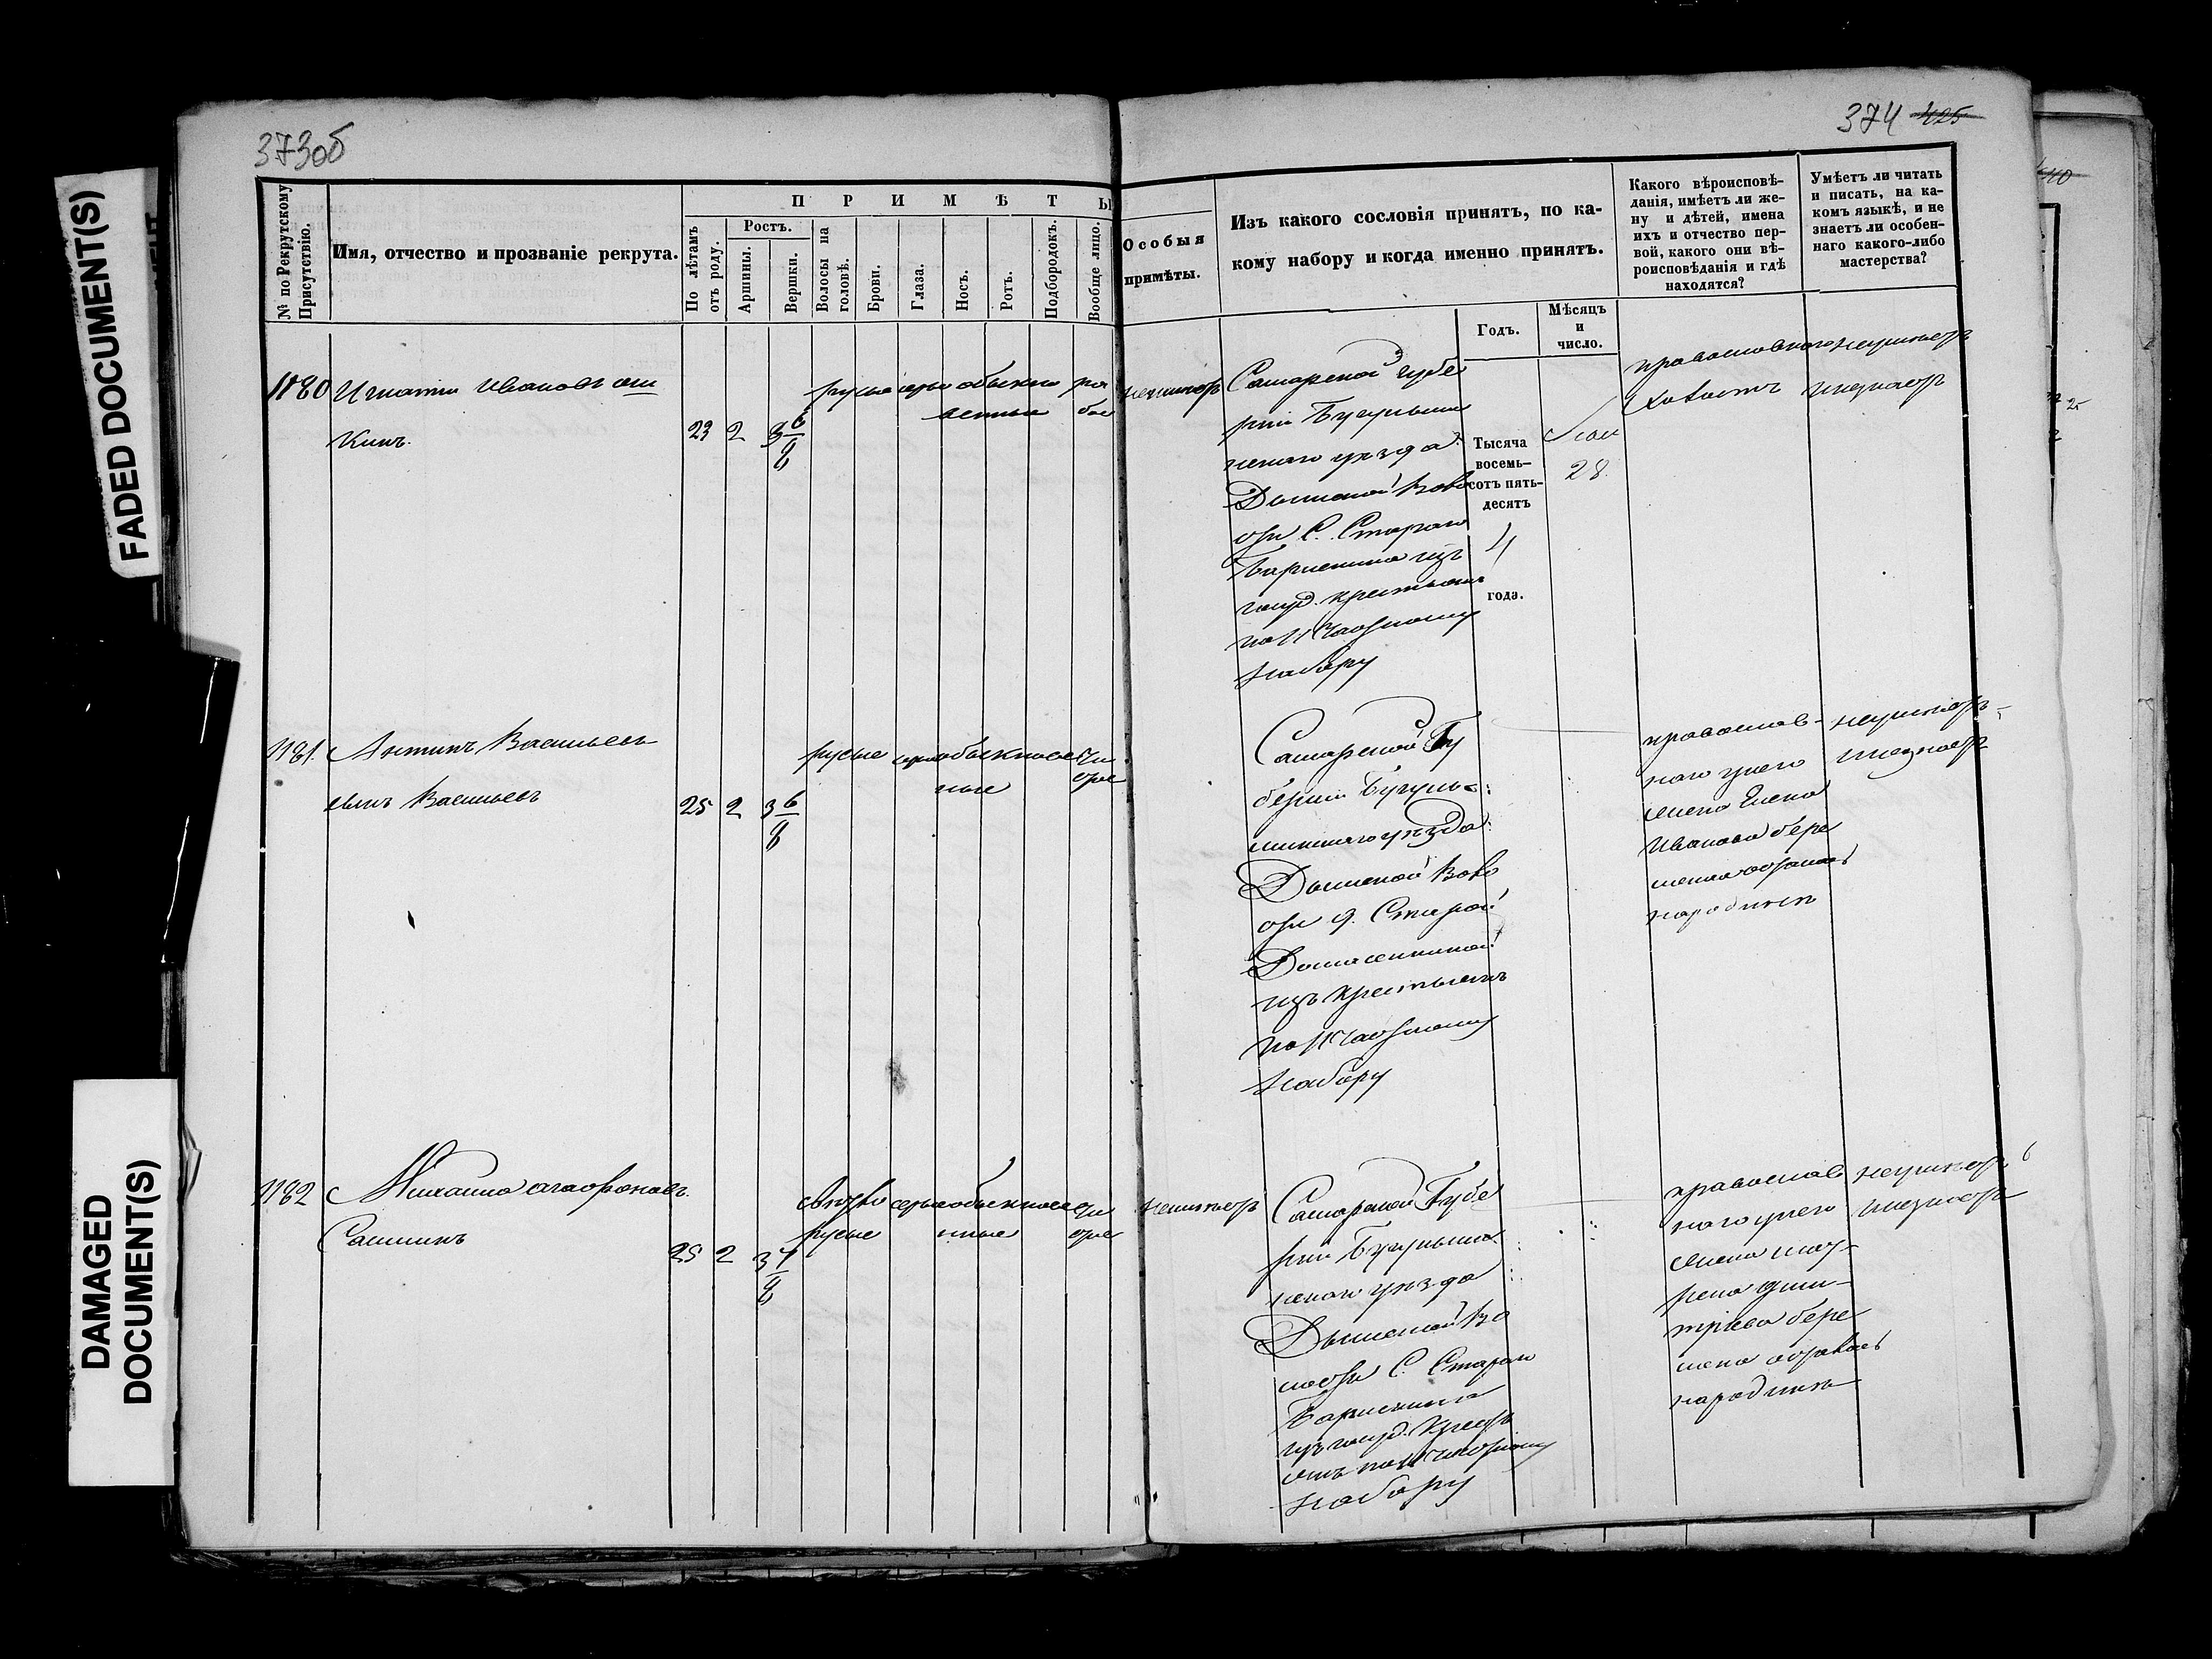 FADED DOCUMENT(S)
DAMAGED
DOCUMENT(S)
373об
374 425
№ по Рекрутскому
Присутствію.
Имя, отчество и прозваніе рекрута.
ПРИМѢТЫ
По лѣтамъ
отъ роду.
Ростъ.
Аршины.
Вершки.
Волосы на
головѣ.
Брови.
Глаза.
Носъ.
Ротъ.
Подбородокъ.
Вообще лицо.
Особыя
примѣты.
Изъ какого сословія принятъ, по ка-
кому набору и когда именно принятъ.
Годъ.
Мѣсяцъ
и
число.
Какого вѣроисповѣ-
данія, имѣетъ ли же-
ну и дѣтей, имена
ихъ и отчество пер-
вой, какого они вѣ-
роисповѣданія и гдѣ
находятся?
Умѣетъ ли читать
и писать, на ка-
комъ языкѣ, и не
знаетъ ли особен-
наго какого-либо
мастерства?
1180
Игнатій Ивановъ
кинъ.
23 2 3 6/8
русые серые обыкно
венные
рябое
неимѣетъ
Самарской губе
рніи Бугульмин
скаго уѣзда
Дымской воло
сти С. Стараго
изъ
госуд. крестьянъ
по 11 частному
набору
Тысяча
восемь-
сотъ пять-
десятъ
4
года.
28.
православнаго
холостъ
неумѣетъ
незнаетъ
1181.
Антипъ Васильевъ
Васильевъ
25 2 3 6/8
русые серые обыкновен
ные
чи
стое
Самарской Гу
берніи Бугуль-
минскаго уѣзда
Дымской воло
сти д. Старой
изъ крестьянъ
по 11 частному
набору
православ-
наго у него
жена Елена
Иванова бере
менна осталась
народинѣ
неумѣетъ
незнаетъ
1182
Михайло Агафоновъ.
Сашинъ
25 2 3 4/8
свѣтло
русые
серые обыкновен
ные
чи
стое
неимѣетъ
Самарской Губе
рніи Бугульмин
скаго уѣзда
Дымской во
лости С. Стараго
изъ госуд. крест
янъ по 11 частному
набору
православ
наго у него
жена Мат-
рена Дми-
тріева бере
менна осталась
народинѣ
неумѣетъ
незнаетъ